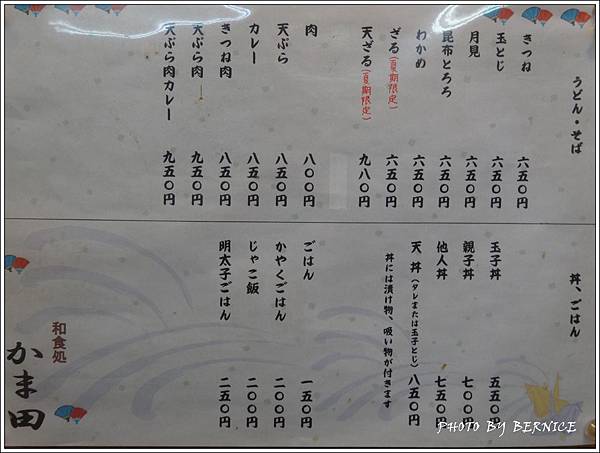 うどん・そば
きつね 六五〇円
玉とじ 六五〇円
月見 六五〇円
昆布とろろ 六五〇円
わかめ 六五〇円
ざる(夏期限定) 六五〇円
天ざる(夏期限定) 九八〇円
肉 八〇〇円
天ぷら 八五〇円
カレー 八五〇円
きつね肉 八五〇円
天ぷら肉 九五〇円
天ぷら肉カレー 九五〇円
丼、ごはん
玉子丼 五五〇円
親子丼 七〇〇円
他人丼 七五〇円
天丼(タレまたは玉子とじ) 八五〇円
丼には漬け物、吸い物が付きます
ごはん 一五〇円
かやくごはん 二〇〇円
じゃこ飯 二〇〇円
明太子ごはん 二五〇円
和食処
かま田
PHOTO BY BERNICE